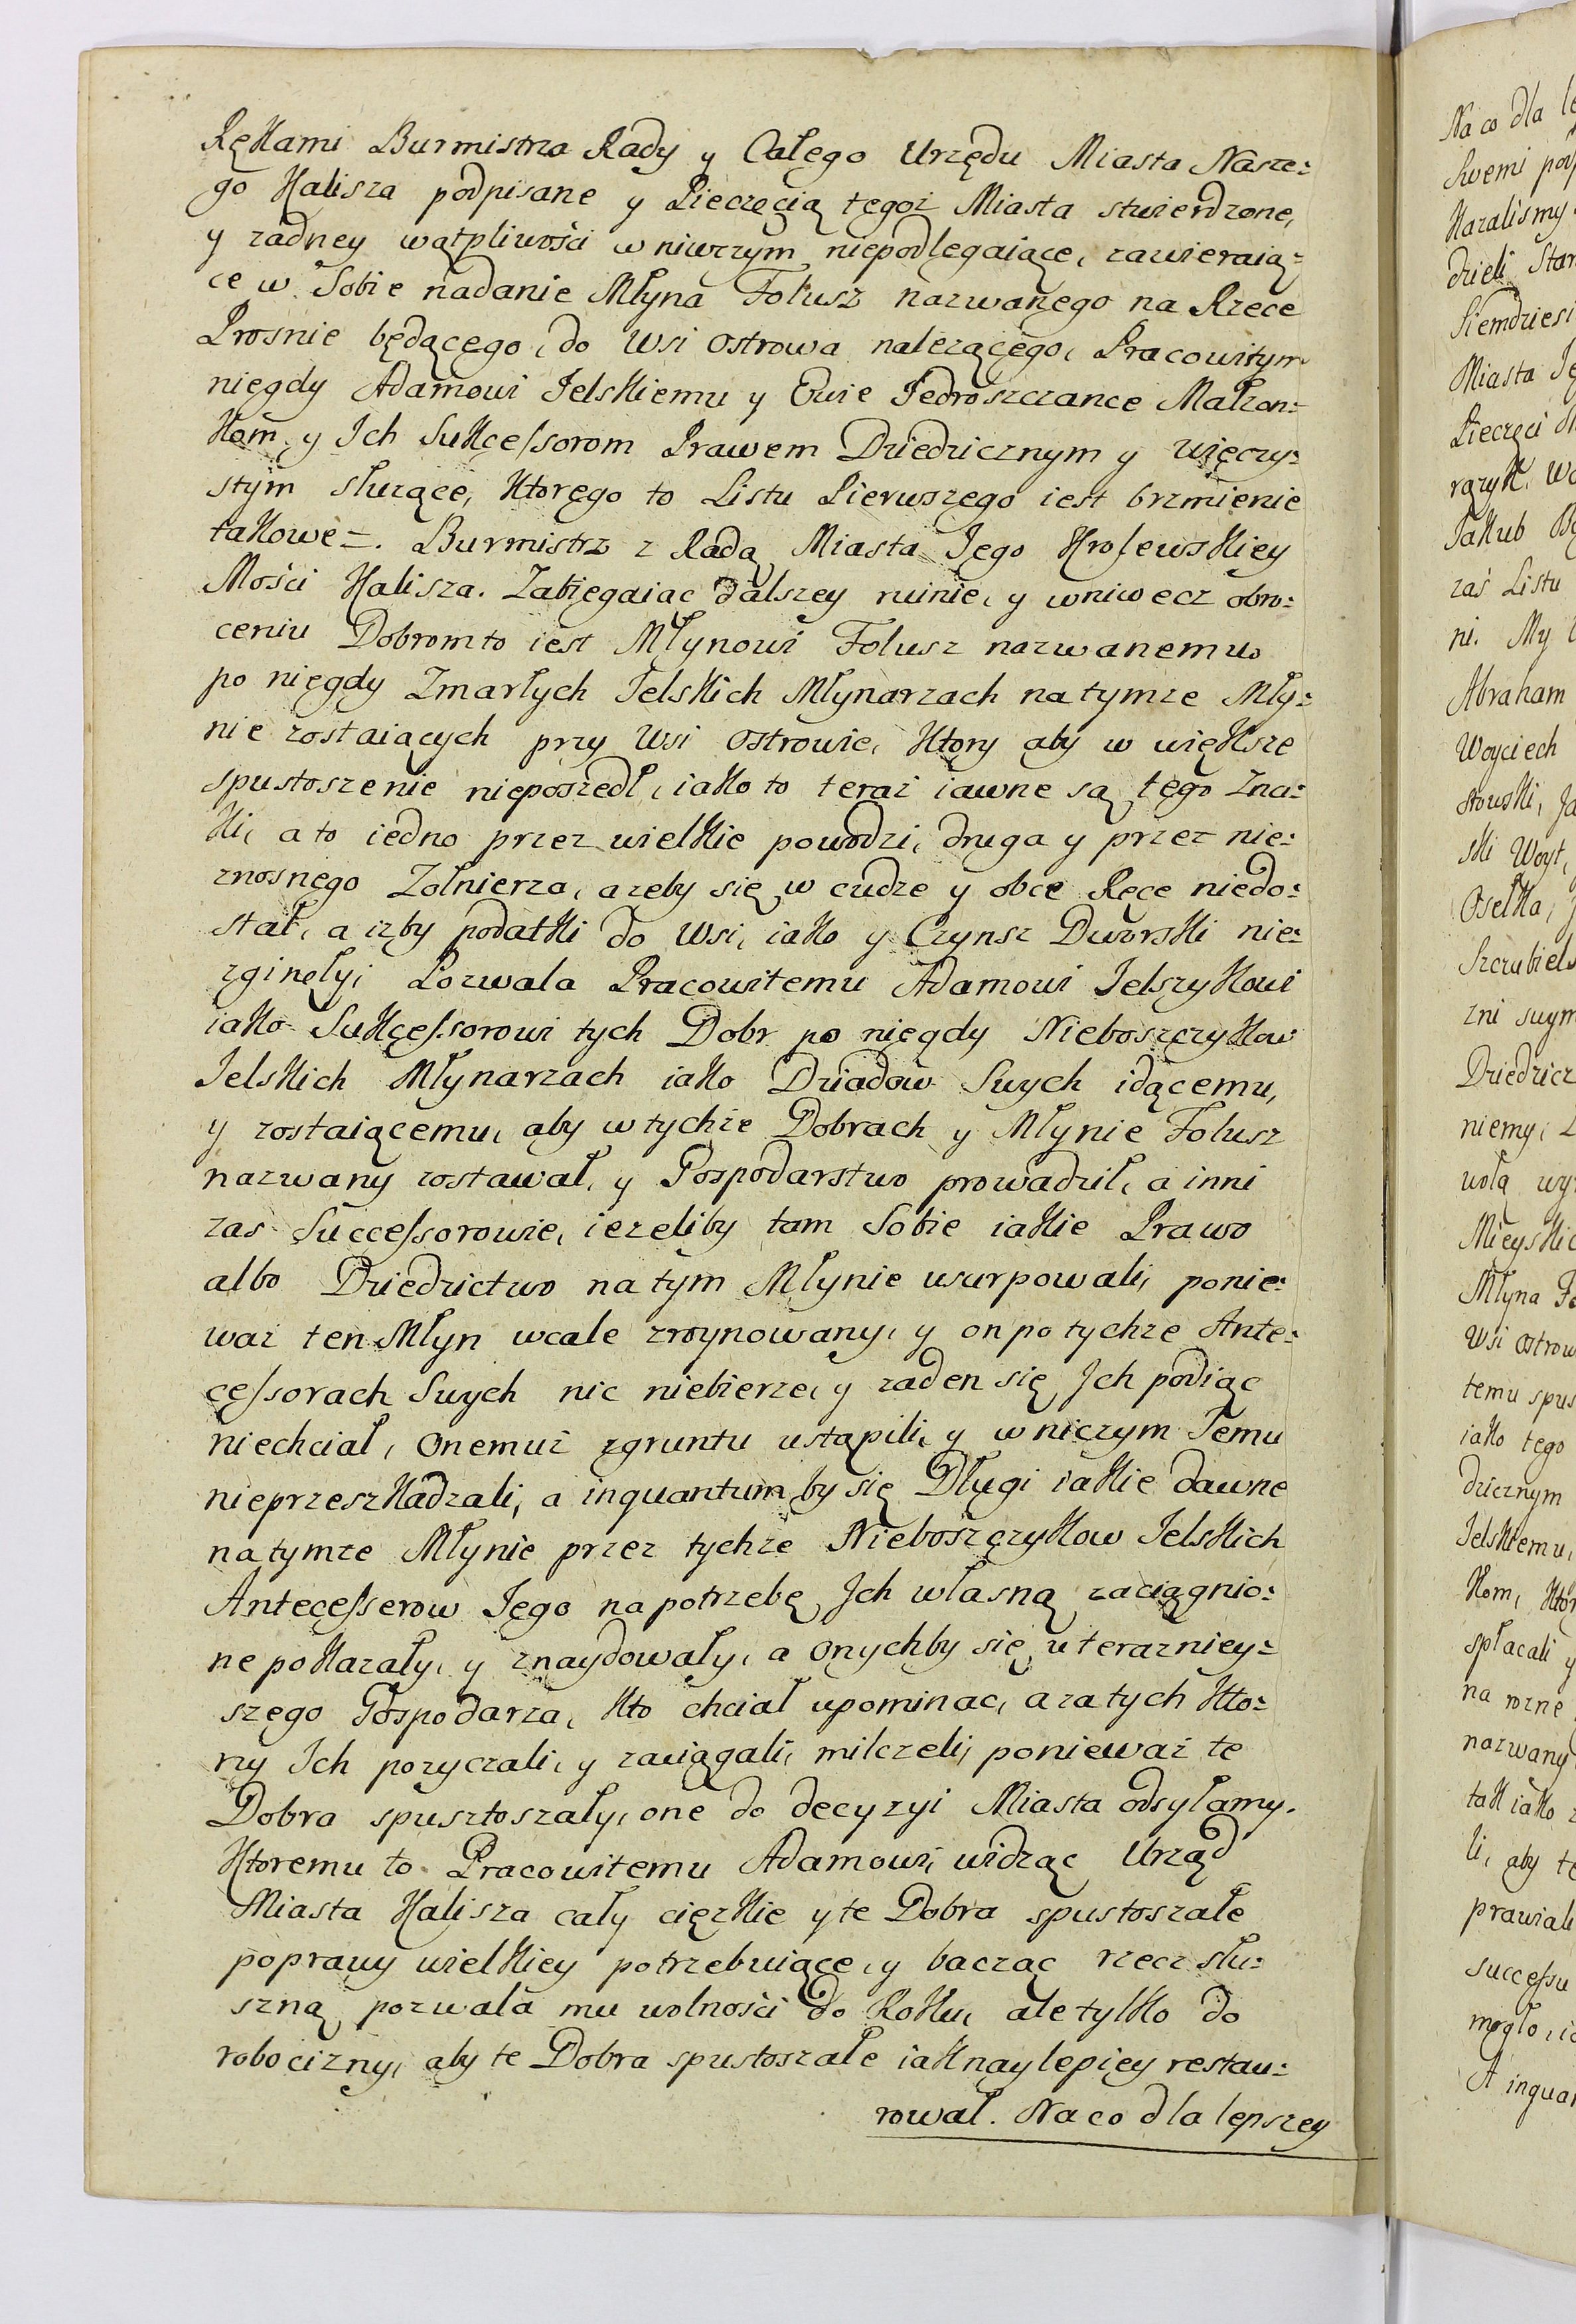 Rękami Burmistrza Rady y Całego Urzędu Miasta Nasze:
go Kalisza podpisane y Pieczęcią tegoż Miasta stwierdzone,
y zadney wątpliwości w niwczym niepodlegaiące, zawieraią:
ce w Sobie nadanie Młyna Folusz nazwanego na Rzece
Prosnie będącego, do Wsi Ostrowa nalezącego, Pracowitym
niegdy Adamowi Jelskiemu y Ewie Jedroszczance Małzon:
kom, y Ich Sukcessorom Prawem Dziedzicznym y Więczy:
stym słuzące, Ktorego to Listu Pierwszego iest brzmienie
takowe =. Burmistrz z Radą Miasta Jego Krolewskiey
Mości Kalisza. Zabiegaiąc dalszey ruinie, y wniwecz obro:
ceniu Dobrom to iest Młynowi Folusz nazwanemu
po niegdy Zmarłych Jelskich Młynarzach na tymze Mły:
nie zostaiących przy Wsi Ostrowie, Ktory aby w większe
spustoszenie nieposzedł, iako to teraz iawne są tego Zna:
ki, a to iedno przez wielkie powodzi, druga y przez nie:
znosnego Zołnierza, azeby się w cudze y obce Ręce niedo:
stał, a izby podatki do Wsi, iako y Czynsz Dworski nie:
zginęły, Pozwala Pracowitemu Adamowi Jelszykowi
iako Sukcessorowi tych Dobr po niegdy Nieboszczykow
Jelskich Młynarzach iako Dziadow Swych idącemu,
y zostaiącemu, aby w tychze Dobrach y Młynie Folusz
nazwany zostawał, y Gospodarstwo prowadził, a inni
zas Successorowie, iezeliby tam Sobie iakie Prawo
albo Dziedzictwo na tym Młynie usurpowali, ponie:
waz ten Młyn wcale zroynowany, y on po tychze Ante:
cessorach Swych nic niebierze, y zaden się Ich podiąc
niechciał, Onemuz zgruntu ustąpili, y w niczym Jemu
nieprzeszkadzali, a inquantum by się Długi iakie dawne
na tymze Młynie przez tychze Nieboszczykow Jelskich
Antecesserow Jego na potrzebę Ich własną zaciągnio:
ne pokazały, y znaydowały, a Onychby się u terazniey:
szego Gospodarza, kto chciał upominac, a za tych kto:
ry Ich pozyczali, y zaciągali, milczeli, ponieważ te
Dobra spusztoszały, one do decyzyi Miasta odsyłamy.
Ktoremu to Pracowitemu Adamowi, widząc Urząd
Miasta Kalisza cały cięzkie y te Dobra spustoszałe
poprawy wielkiey potrzebuiące, y bacząc rzecz słu:
szną pozwala mu wolności do Roku, ale tylko do
robocizny, aby te Dobra spustoszałe iaknaylepiey restau:
rował. Na co dla lepszey
Na co dla
Swemi
Kazalismy
dzieli Star
Siemdziesi
Miasta
Pieczęci
Jakub
zas Listu
ni. My
Abraham
Woyciech
ski Woyt,
Oselka,
zni swym
Dziedzicz
niemy,
wolą
Mieyskic
Młyna
Wsi Ostrow
temu spus
iako tego
dzicznym
Jelskiemu,
kom, ktor
spłacali y
na rozne
nazwany
tak iako
li, aby te
prawiali
successu
mogło,
A inquan